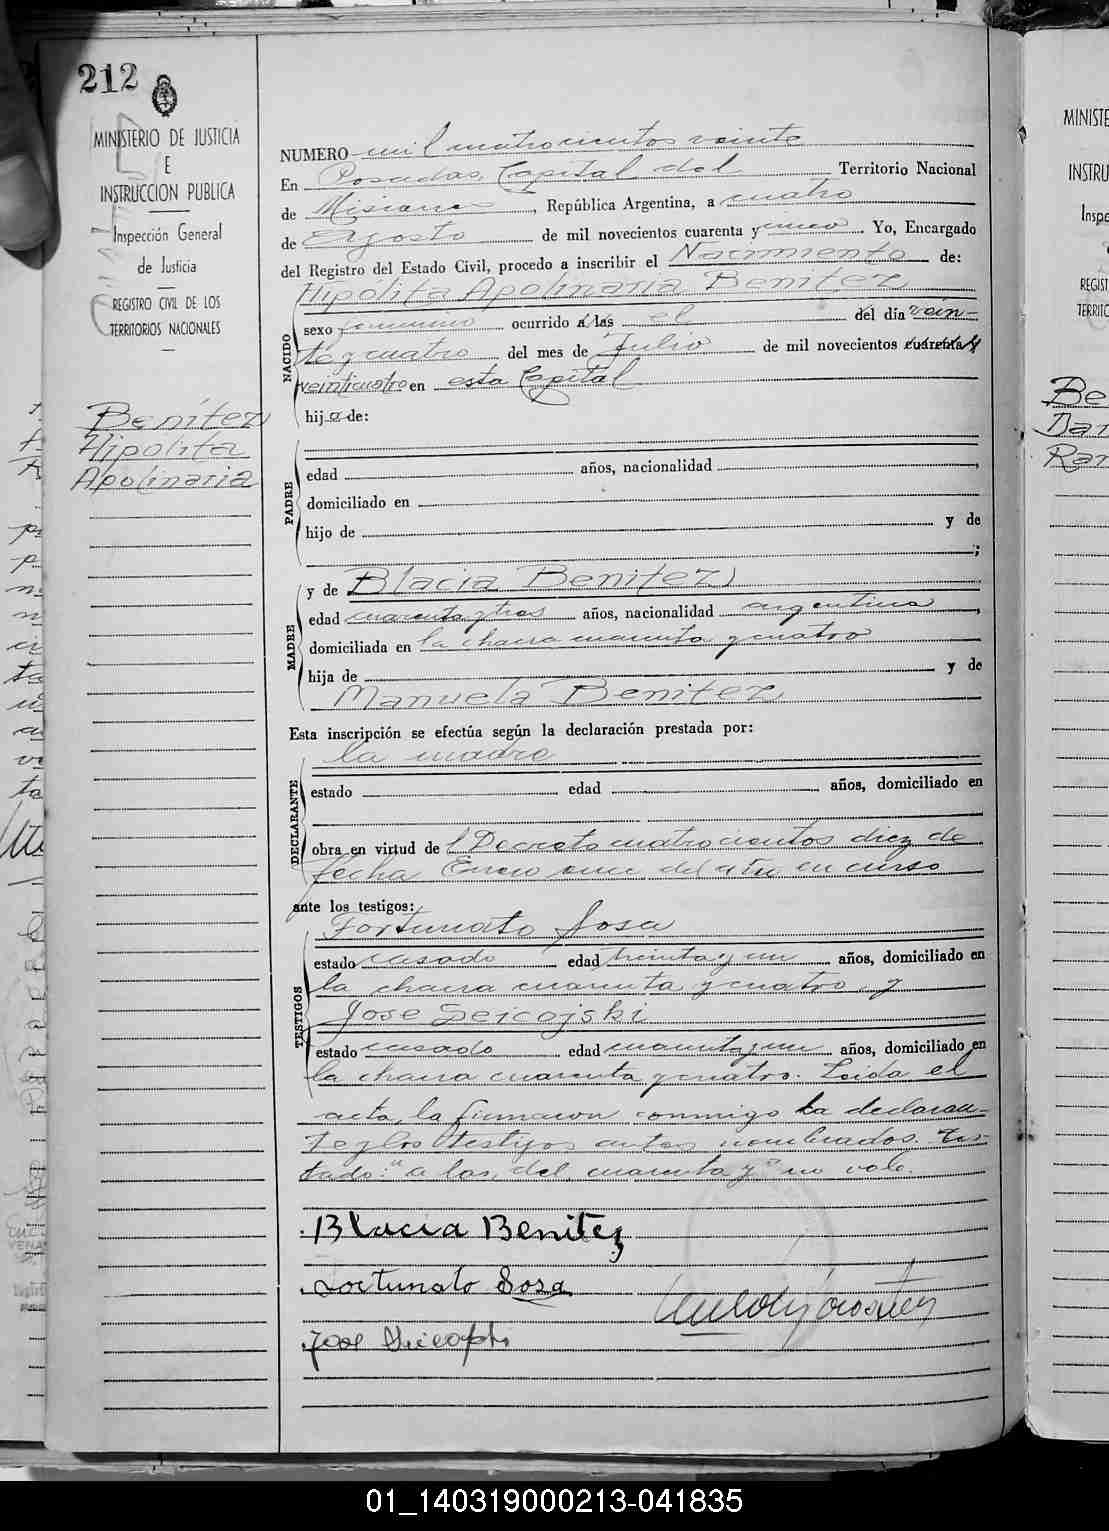 212
MINISTERIO DE JUSTICIA
E
INSTRUCCION PUBLICA
Inspección General
de Justicia
REGISTRO CIVIL DE LOS
TERRITORIOS NACIONALES
Benítez
Hipólita
Apolinaria
NUMERO mil cuatrocientos veinte
En Posadas, Capital del Territorio Nacional
de Misiones, República Argentina, a cuatro
de Agosto de mil novecientos cuarenta y cinco. Yo, Encargado
del Registro del Estado Civil, procedo a inscribir el Nacimiento de:
Hipólita Apolinaria Benitez
NACIDO
sexo femenino ocurrido a las el del día vein-
te y cuatro del mes de Julio de mil novecientos cuarenta y
veinticuatro en esta Capital
hija de:
PADRE
edad años, nacionalidad ,
domiciliado en
hijo de y de
;
MADRE
y de Blacia Benitez,
edad cuarenta y tres años, nacionalidad argentina ,
domiciliada en la chacra cuarenta y cuatro
hija de y de
Manuela Benitez
Esta inscripción se efectúa según la declaración prestada por:
la madre
DECLARANTE
estado edad años, domiciliado en
obra en virtud de l Decreto cuatrocientos diez de
fecha Enero once del año en curso
ante los testigos:
Fortunato Sosa
TESTIGOS
estado casado edad treinta y un años, domiciliado en
la chacra cuarenta y cuatro, y
Jose Seicojski
estado casado edad cuarenta y un años, domiciliado en
la chacra cuarenta y cuatro. Leida el
acta, la firmaron conmigo la declaran-
te y los testigos antes nombrados. Tes-
tado: "a las, del, cuarenta y" no vale.
Blacia Benitez
Fortunato Sosa
Jose
MINISTE
INSTRU
Inspe
REGIST
TERRITO
Be
Ram
01_140319000213-041835